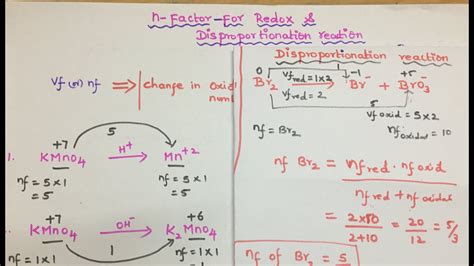 n-Factor-For Redox &
Disproportionation reaction
Vf (or) nf ⇒ change in oxid
numl
+7
5
1. KMnO4 H+ → Mn+2
nf = 5×1
= 5
nf = 5×1
= 5
+7
+6
KMnO4 OH- → K2MnO4
1
nf = 1×1
nf = 1×1
Disproportionation reaction
0
Vf red = 1×2
-1
+5
Br2 → Br- + BrO3-
Vf red = 2
5
Vf oxid = 5×2
nf = Br2
nf oxidat = 10
nf Br2 = nf red · nf oxid
nf red + nf oxid
= 2×10 = 20 = 5/3
2+10
12
nf of Br2 = 5